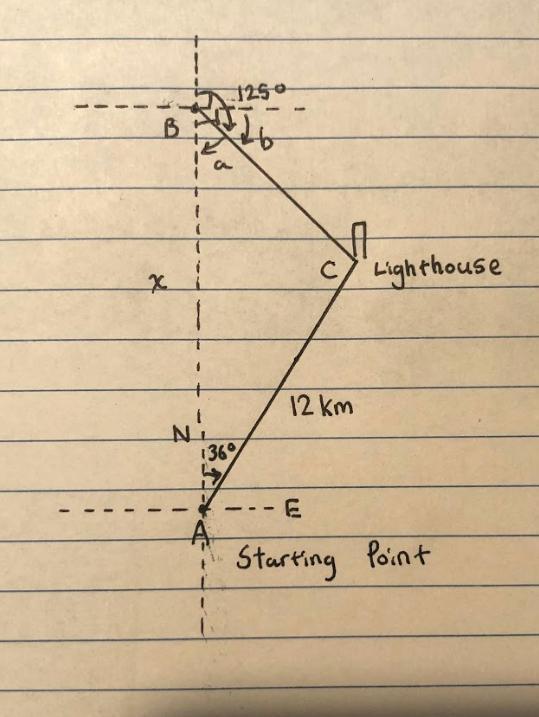 125°
B
b
a
C Lighthouse
x
12 km
N
36°
E
A
Starting Point